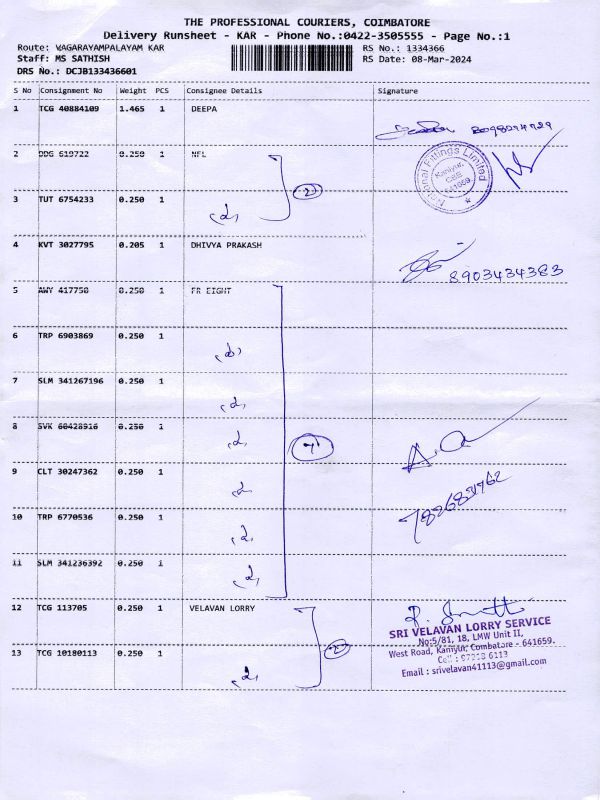 THE PROFESSIONAL COURIERS, COIMBATORE
Delivery Runsheet - KAR - Phone No.:0422-3505555 - Page No.:1
Route: WAGARAYAMPALAYAM KAR
RS No.: 1334366
Staff: MS SATHISH
RS Date: 08-Mar-2024
DRS No.: DCJB133436601
S No Consignment No Weight PCS Consignee Details Signature
1 TCG 40884109 1.465 1 DEEPA
2 DDG 619722 0.250 1 NFL
National Fittings Limited
Kaniyur,
CBE
641659
3 TUT 6754233 0.250 1
2
4 KVT 3027795 0.205 1 DHIVYA PRAKASH
8903434383
5 AWY 417750 0.250 1 FR EIGHT
6 TRP 6903869 0.250 1
7 SLM 341267196 0.250 1
8 SVK 60428916 0.250 1
7
9 CLT 30247362 0.250 1
10 TRP 6770536 0.250 1
11 SLM 341236392 0.250 1
12 TCG 113705 0.250 1 VELAVAN LORRY
SRI VELAVAN LORRY SERVICE
No:5/81, 18, LMW Unit II,
West Road, Kaniyur, Coimbatore - 641659.
Email : srivelavan41113@gmail.com
13 TCG 10180113 0.250 1
2